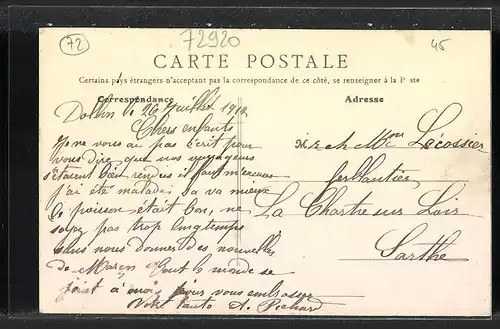 72
72920
45
CARTE POSTALE
Certains pays étrangers n'acceptant pas la correspondance de ce côté, se renseigner à la Poste
Correspondance
Adresse
le 26 Juillet 1912
Chers enfants
Je ne vous ai pas écrit pour
vous dire que nos voyageurs
s'étaient bien rendus il faut
j'ai été malade sa va mieux
le poisson était bon, ne
pas trop longtemps
sans nous donner des nouvelles
de Tout le monde se
joint à moi pour vous embrasser
Votre A.
M r et Mme Lécossier
ferblantier
La Chartre sur Loir
Sarthe